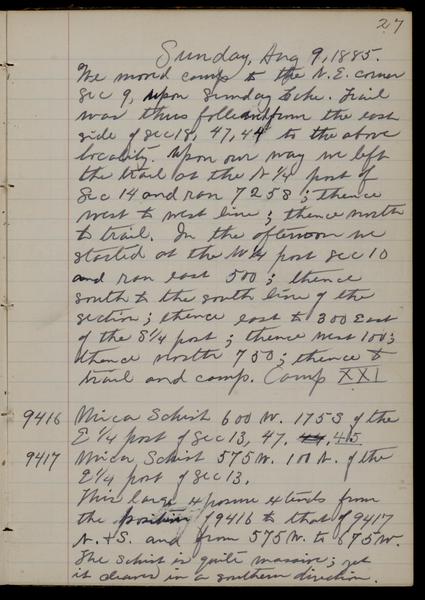 27
Sunday, Aug 9, 1885.
We moved camp to the N.E. corner
Sec 9, upon Sunday Lake. Trail
was thus from the east
side of Sec 18, 47, 44 to the above
locality. Upon our way we left
the trail at the N 1/4 post of
Sec 14 and ran 725 S; thence
west to west line; thence north
to trail. In the afternoon we
started at the W 1/4 post Sec 10
and ran east 500; thence
south to the south line of the
section; thence east to 300 East
of the S 1/4 post; thence west 100;
thence north 750; thence to
trail and camp. Camp XXI
9416 Mica Schist 600 W. 175 S of the
E 1/4 post of Sec 13, 47, 44, 45
9417 Mica Schist 575 W. 100 N. of the
E 1/4 post of Sec 13.
This large exposure extends from
the position of 9416 to that of 9417
N. & S. and from 575 W. to 675 W.
The schist is quite massive; yet
it cleaves in a southern direction.